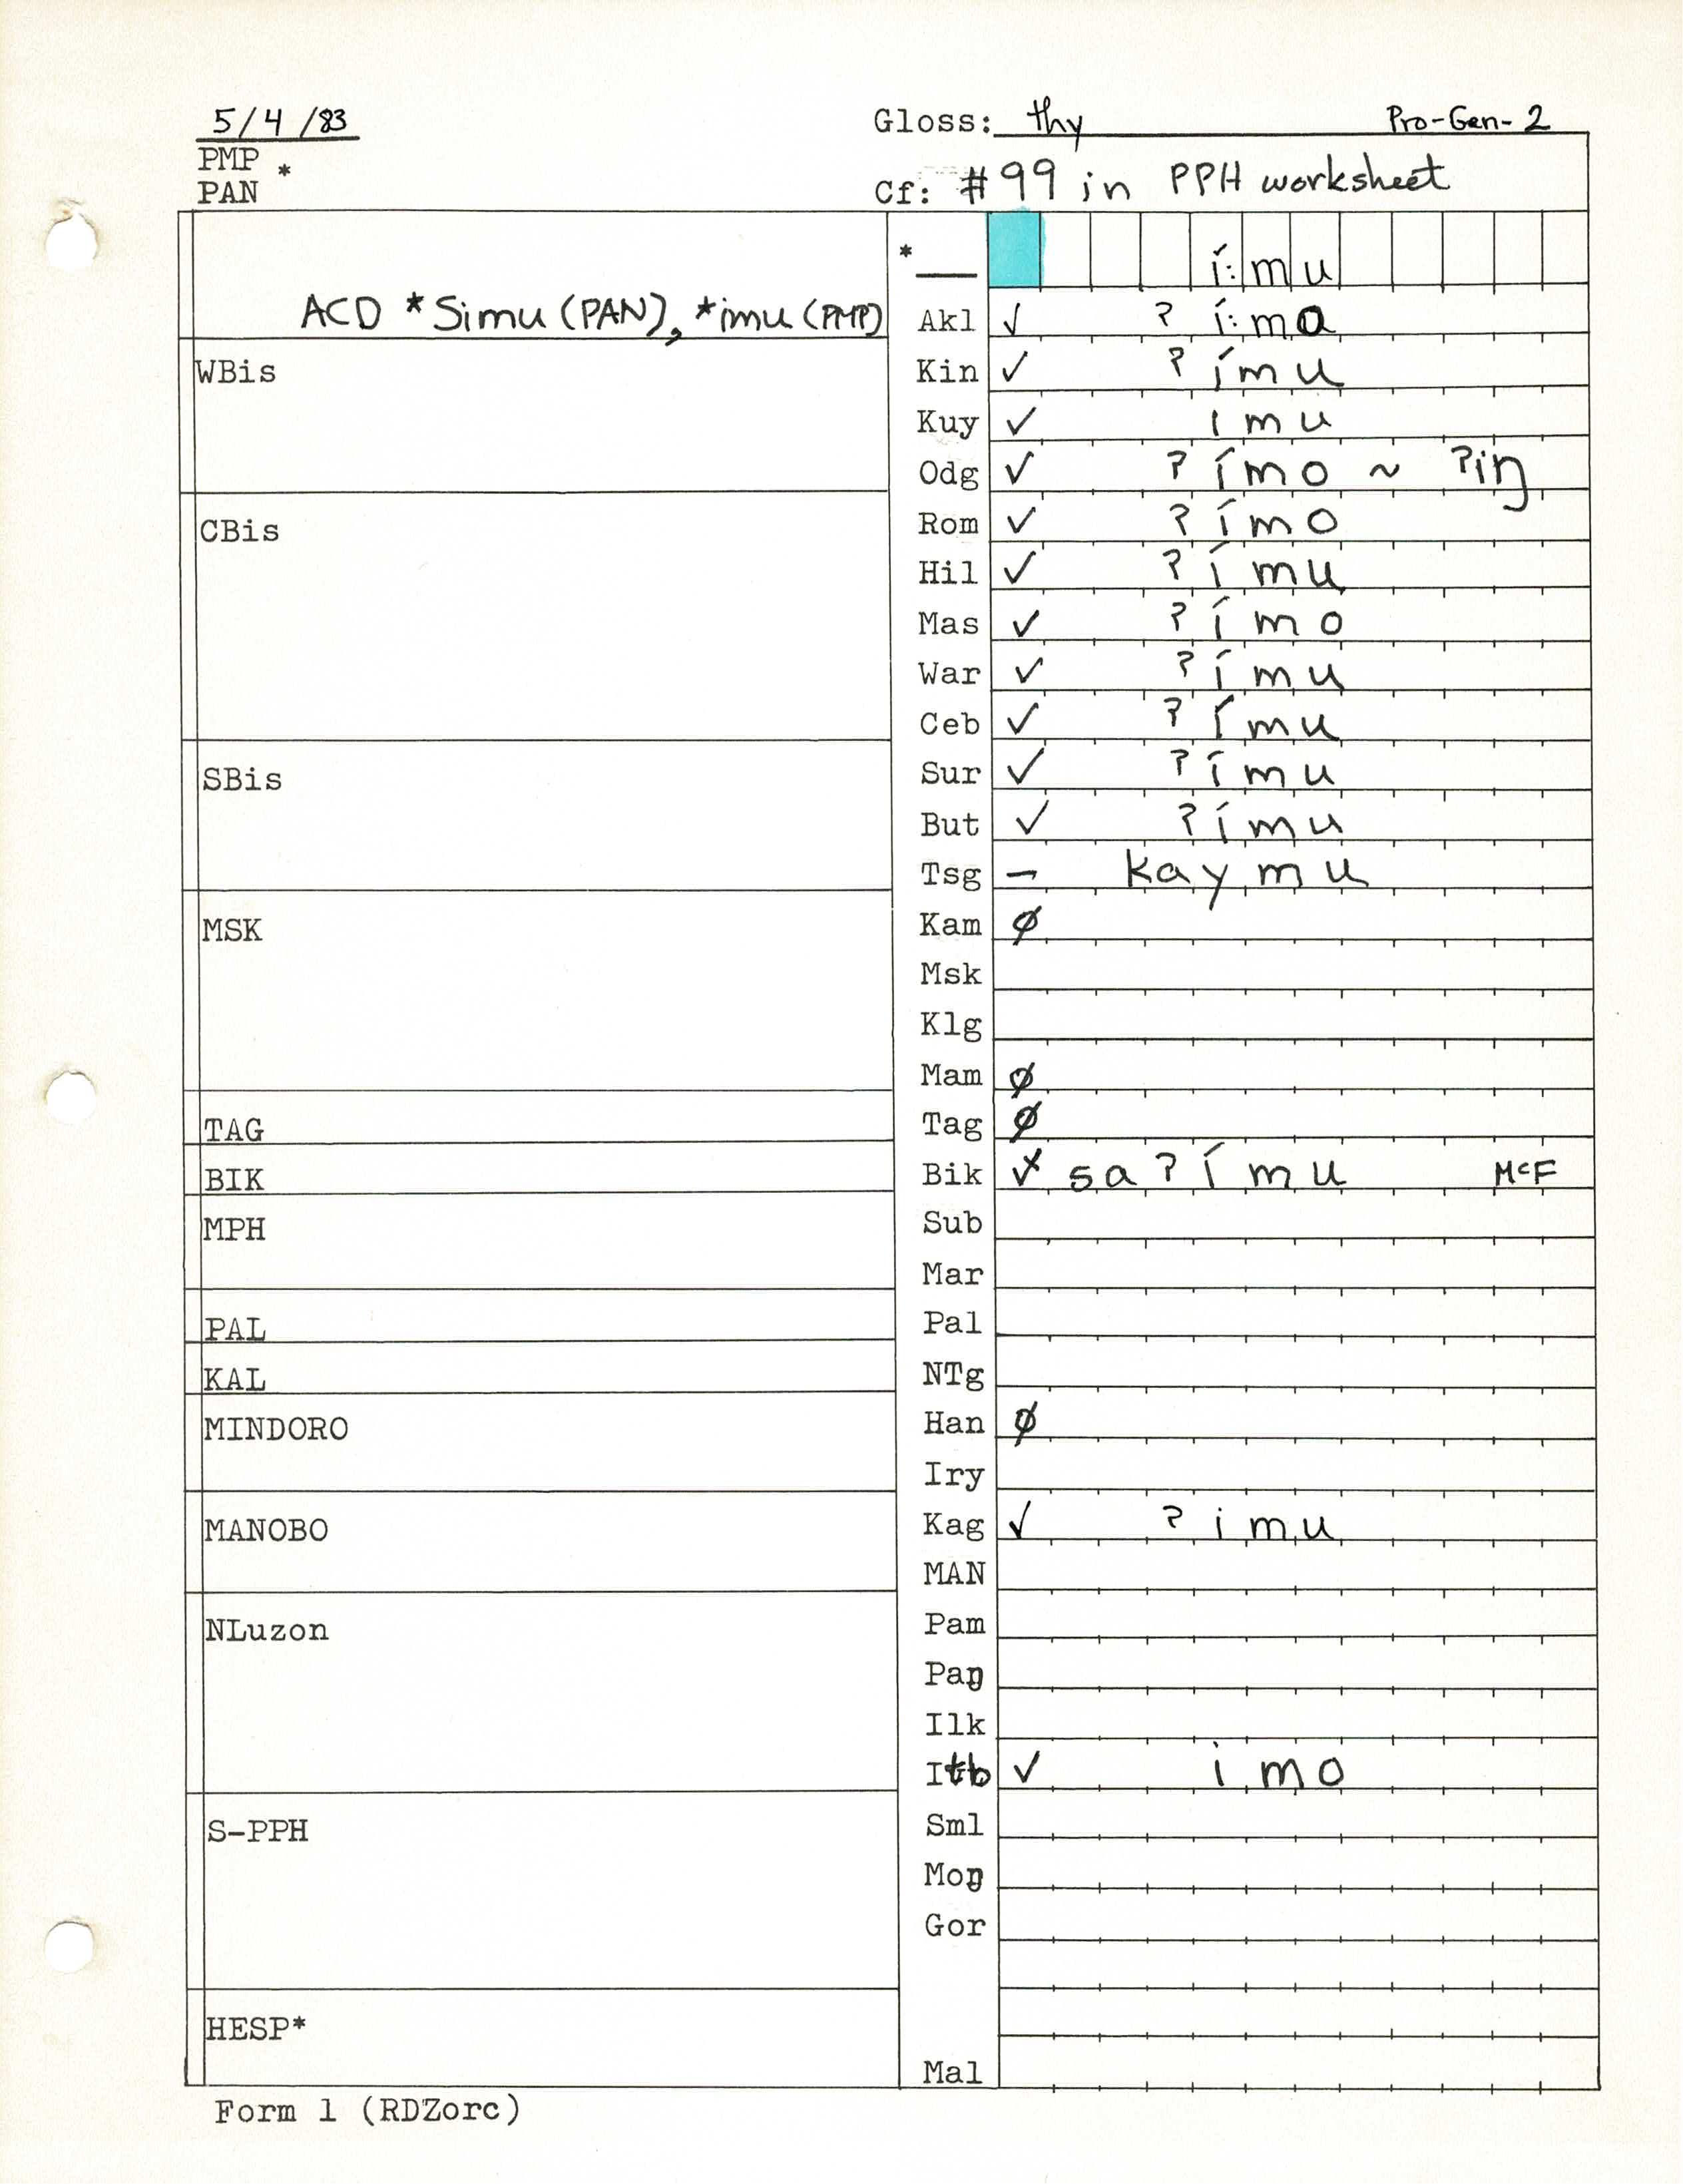 5/4/83 Gloss: thy Pro-Gen-2
PMP *
PAN Cf: #99 in PPH worksheet
* í:mu
ACD *Simu (PAN), *imu (PMP)
Akl ✓ ʔí:mo
WBis Kin ✓ ʔímu
Kuy ✓ imu
Odg ✓ ʔímo ~ ʔiŋ
CBis Rom ✓ ʔímo
Hil ✓ ʔímu
Mas ✓ ʔímo
War ✓ ʔímu
Ceb ✓ ʔímu
SBis Sur ✓ ʔímu
But ✓ ʔímu
Tsg – kaymu
MSK Kam ∅
Msk
Klg
Mam ∅
TAG Tag ∅
BIK Bik ✓ saʔímu McF
MPH Sub
Mar
PAL Pal
KAL NTg
MINDORO Han ∅
Iry
MANOBO Kag ✓ ʔimu
MAN
NLuzon Pam
Paŋ
Ilk
Itb ✓ imo
S-PPH Sml
Moŋ
Gor
HESP*
Mal
Form 1 (RDZorc)